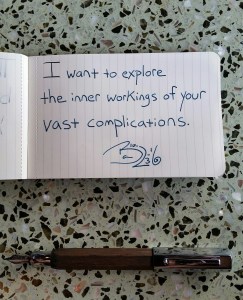 I want to explore
the inner workings of your
vast complications.